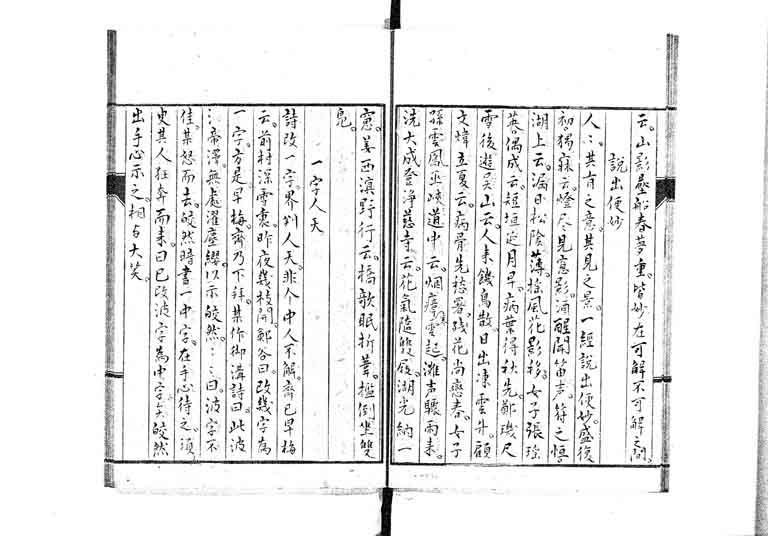 云。山影壓船春夢重。皆妙在可解不可解之間。
說出便妙
人〻共有之意。共見之景。一經說出便妙。盛復
初。獨寐云。燈尽見窓影。酒醒聞笛声。符之恆
湖上云。漏日松陰薄。搖風花影移。女子張瑤
英偶成云。短垣延月早。病葉得秋先。鄭璣尺
雪後遊吳山云。人來饑鳥散。日出凍雲升。顧
文煒立夏云。病骨先愁暑。殘花尚戀春。女子
孫雲鳳巫峽道中云。烟瘴寒雲起。灘声驟雨來。
沈大成登淨慈寺云。花氣隨雙屐。湖光納一
窓。姜西溟野行云。橋欹眠折葦。檻倒坐雙
鳧。
一字人天
詩改一字。界判人天。非个中人不解。齊已早梅
云。前村深雪裏。昨夜幾枝開。鄭谷曰。改幾字為
一字。方是早梅。齊乃下拜。某作御溝詩曰。此波
〻帝澤。無處濯塵纓。以示皎然。〻〻曰。波字不
佳。某怒而去。皎然暗書一中字。在手心待之。須
臾其人狂奔而来。曰已改波字為中字矣。皎然
出手心示之。相与大笑。